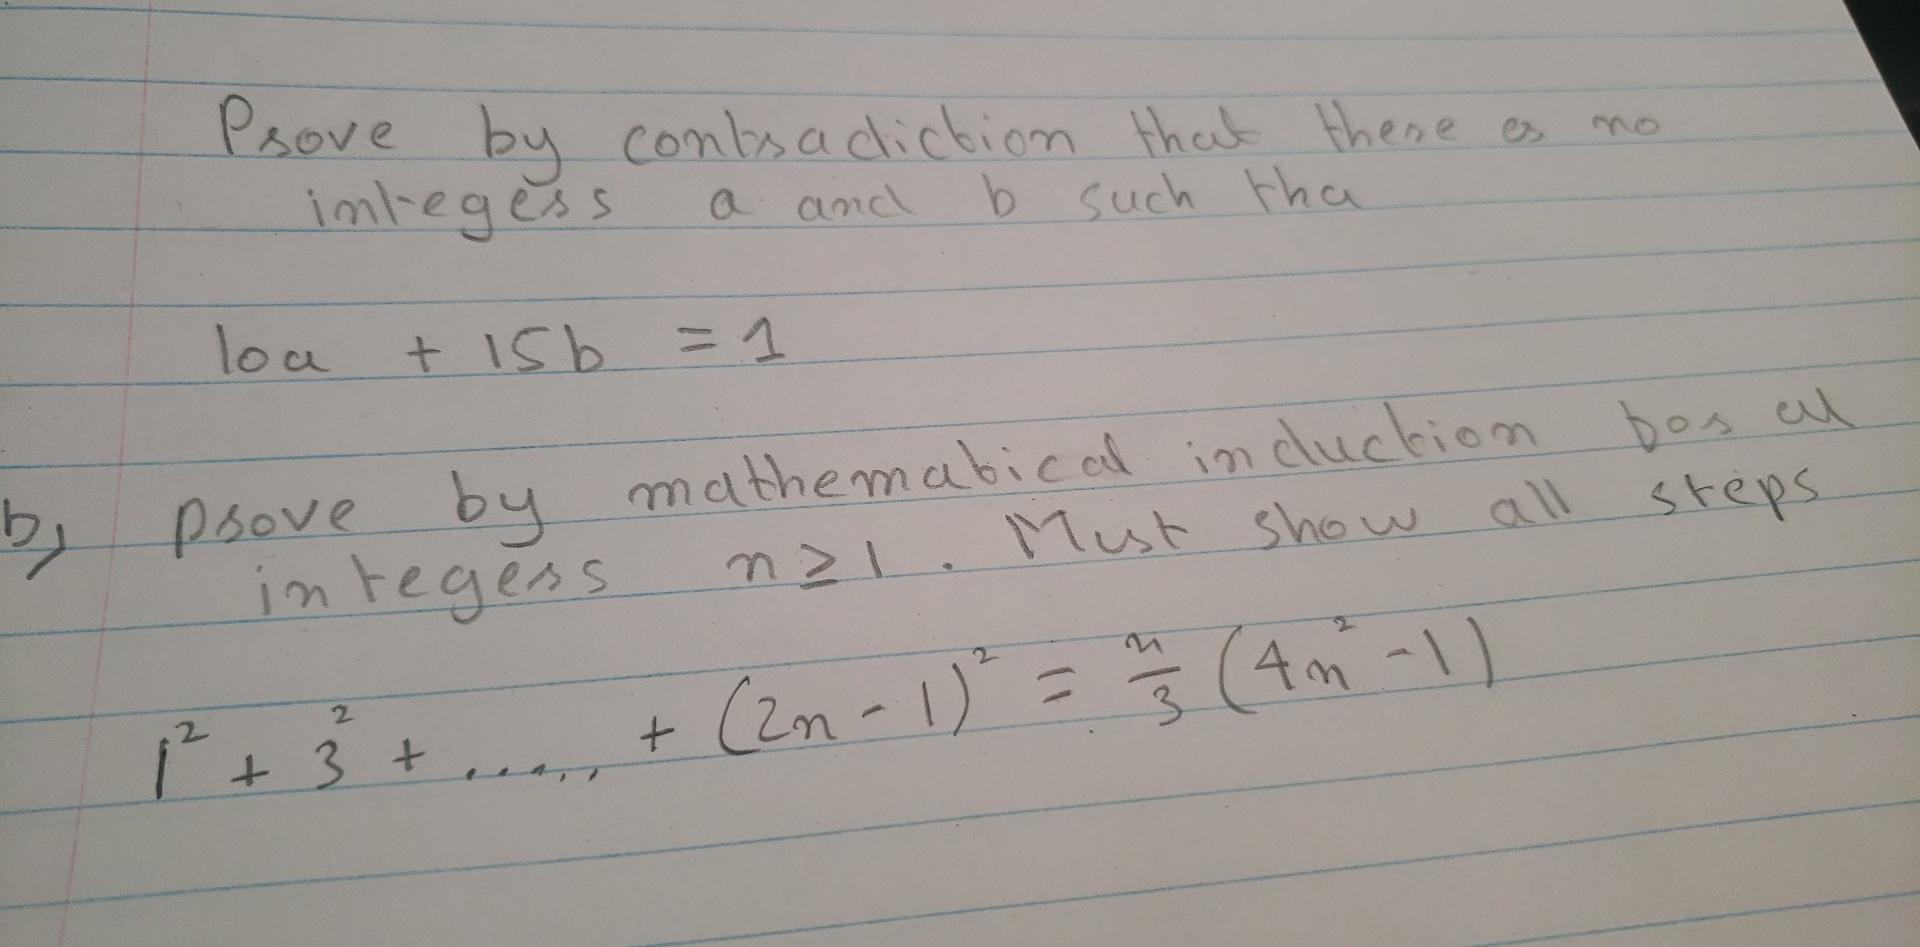 Prove by contradiction that there is no
integers a and b such tha
10a + 15b = 1
b, prove by mathematical induction for all
integers n ≥ 1. Must show all steps
1² + 3² + ...... + (2n - 1)² = n/3 (4n² - 1)